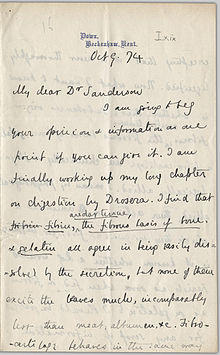 Down,
Beckenham, Kent.
Oct 9. 74
My dear Dr Sanderson
I am going to beg
your opinion & information on one
point if you can give it. I am
finally working up my long chapter
on digestion by Drosera. I find that
areolar tissue,
fibrin, the fibrous basis of bone
& gelatin all agree in being easily dis-
solved by the secretion, but none of them
excite the leaves much, incomparably
less than meat, albumen, &c. Fibro-
cartilage behaves in the same way